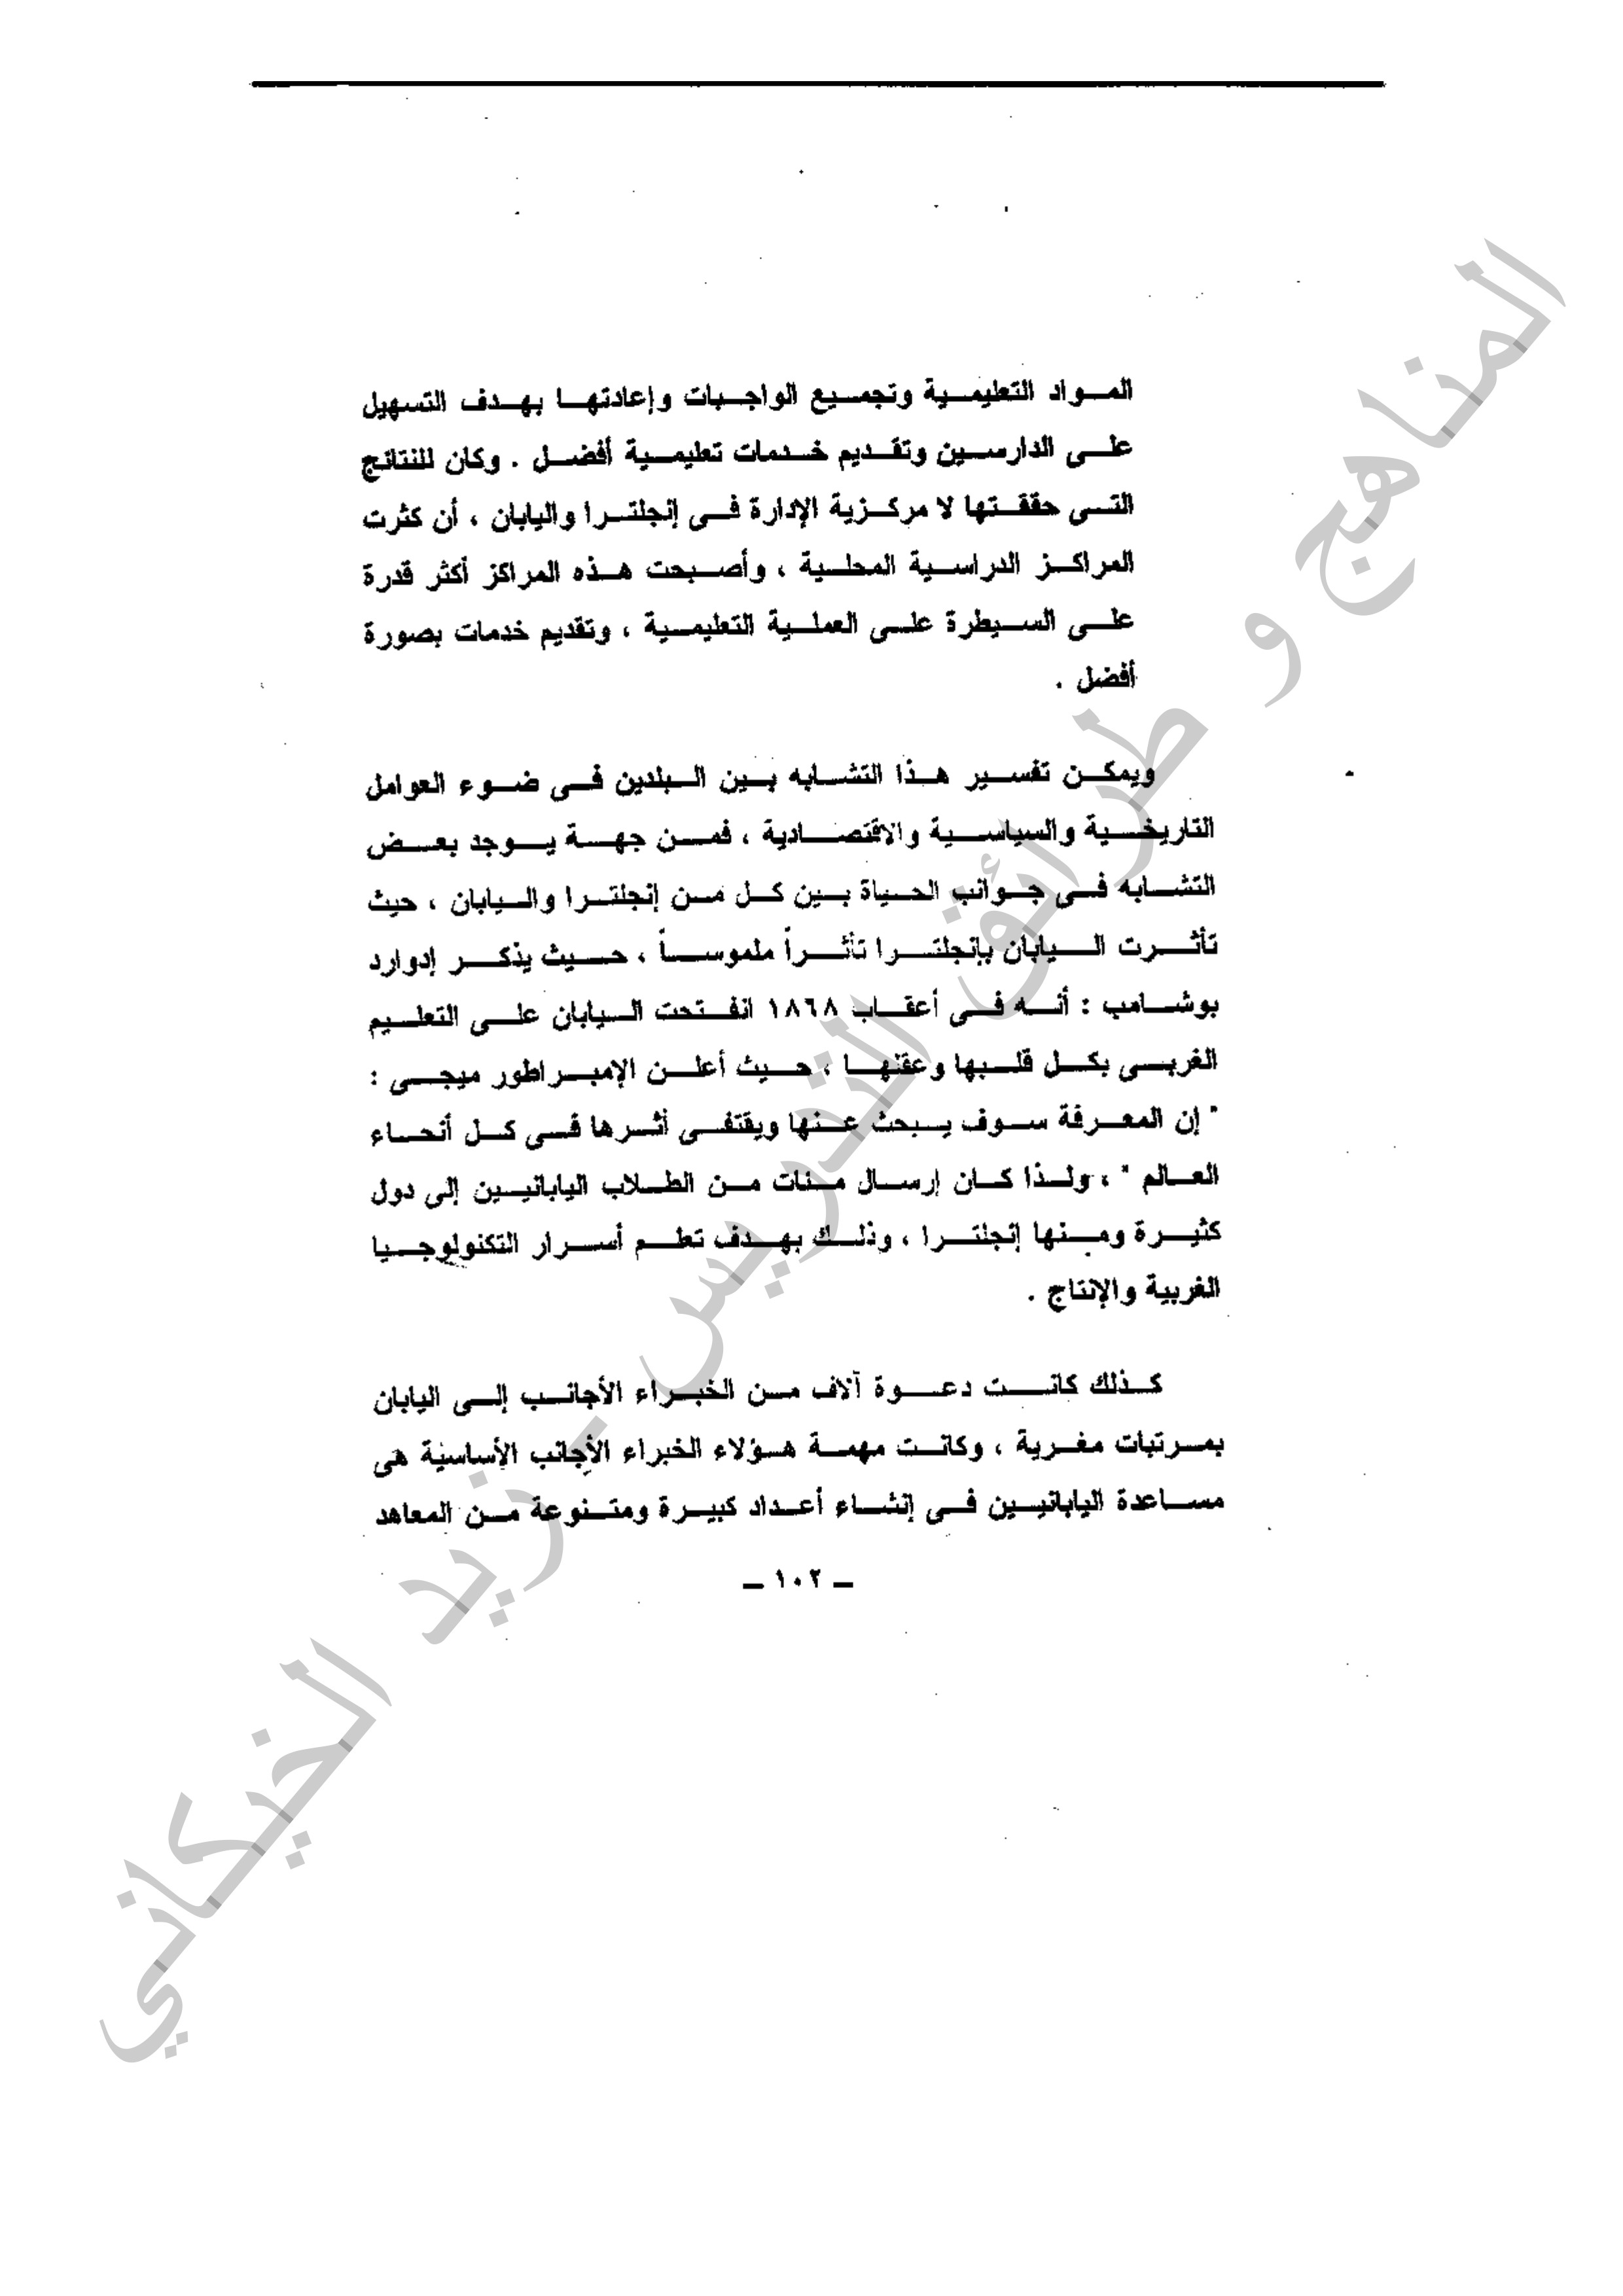 المواد التعليمية وتجميع الواجبات وإعادتها بهدف التسهيل
على الدارسين وتقديم خدمات تعليمية أفضل . وكان للنتائج
التى حققتها لا مركزية الإدارة فى إنجلترا واليابان ، أن كثرت
المراكز الدراسية المحلية ، وأصبحت هذه المراكز أكثر قدرة
على السيطرة على العملية التعليمية ، وتقديم خدمات بصورة
أفضل .
ويمكن تفسير هذا التشابه بين البلدين فى ضوء العوامل
التاريخية والسياسية والاقتصادية ، فمن جهة يوجد بعض
التشابه فى جوانب الحياة بين كل من إنجلترا واليابان ، حيث
تأثرت اليابان بإنجلترا تأثراً ملموساً ، حيث يذكر إدوارد
بوشامب : أنه فى أعقاب ١٨٦٨ انفتحت اليابان على التعليم
الغربى بكل قلبها وعقلها ، حيث أعلن الإمبراطور ميجى :
" إن المعرفة سوف يبحث عنها ويقتفى أثرها فى كل أنحاء
العالم " ، ولذا كان إرسال مئات من الطلاب اليابانيين إلى دول
كثيرة ومنها إنجلترا ، وذلك بهدف تعلم أسرار التكنولوجيا
الغربية والإنتاج .
كذلك كانت دعوة آلاف من الخبراء الأجانب إلى اليابان
بمرتبات مغرية ، وكانت مهمة هؤلاء الخبراء الأجانب الأساسية هى
مساعدة اليابانيين فى إنشاء أعداد كبيرة ومتنوعة من المعاهد
– ١٠٢ –
المناهج و طرائق التدريس - زيد الخيكاني